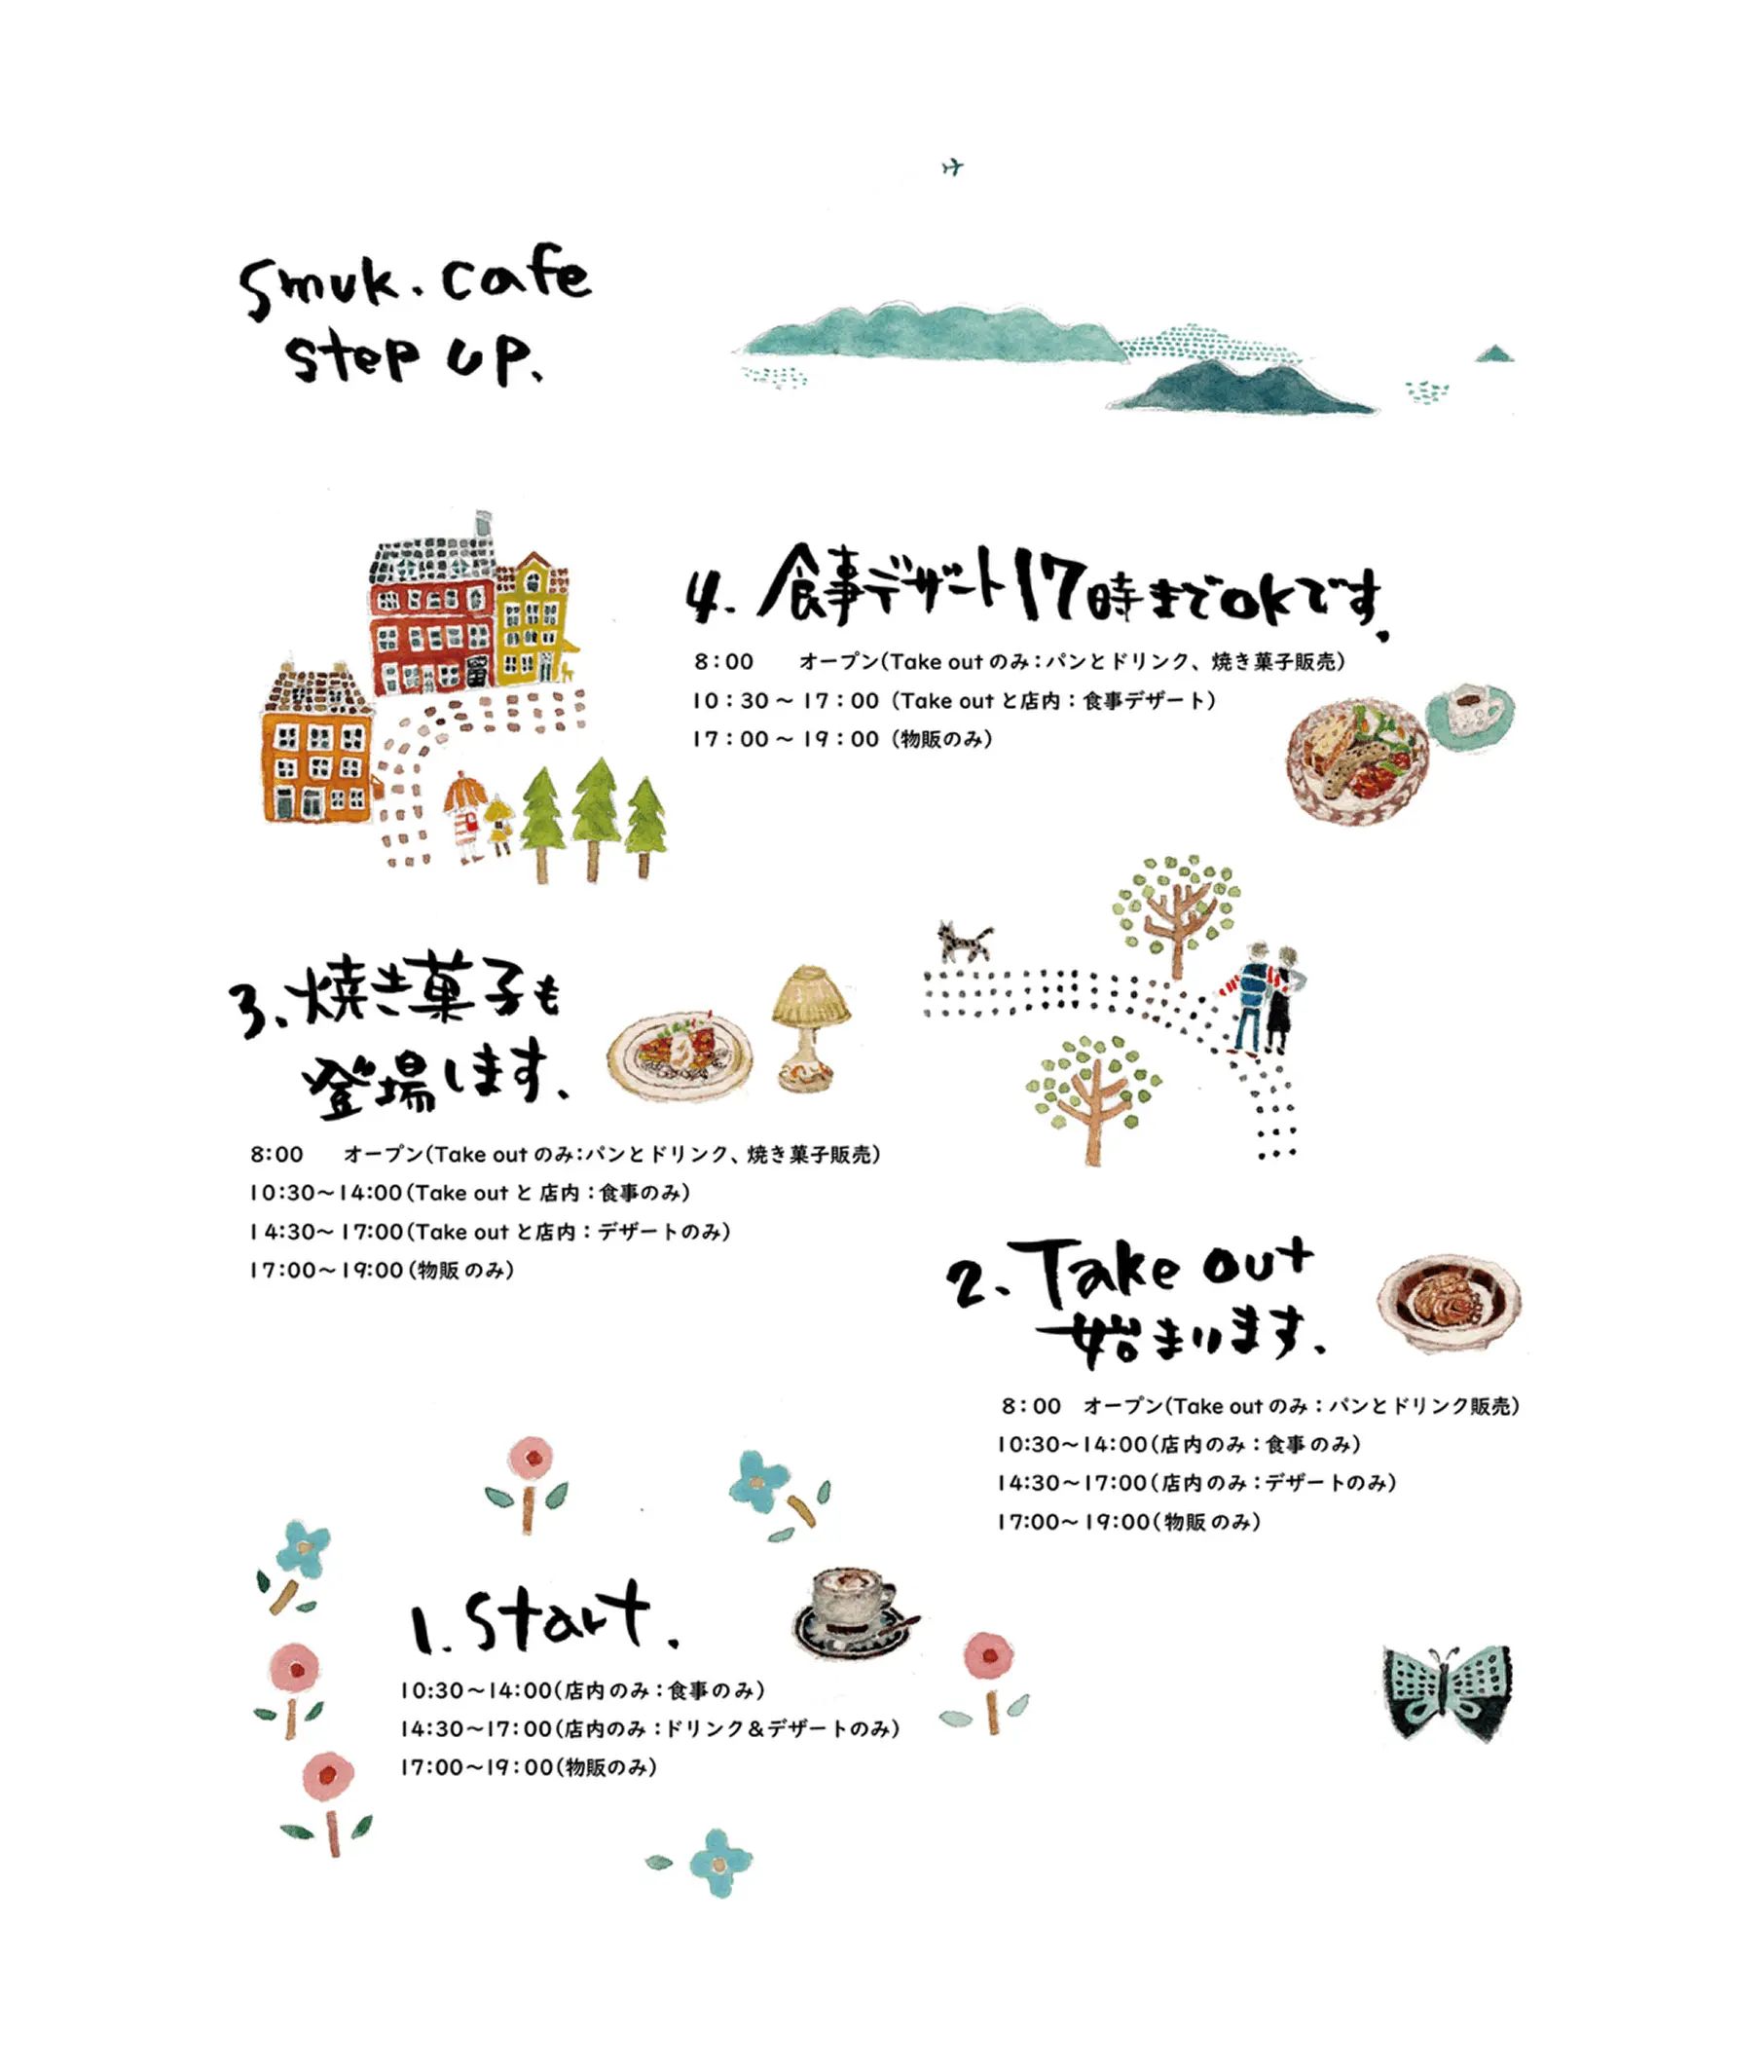 smuk. cafe
step up.
4. 食事デザート17時までOKです.
8:00 オープン(Take out のみ:パンとドリンク、焼き菓子販売)
10:30〜17:00 (Take out と店内:食事デザート)
17:00〜19:00 (物販のみ)
3. 焼き菓子も
登場します.
8:00 オープン(Take out のみ:パンとドリンク、焼き菓子販売)
10:30〜14:00(Take out と 店内:食事のみ)
14:30〜17:00(Take out と店内:デザートのみ)
17:00〜19:00(物販のみ)
2. Take out
始まります.
8:00 オープン(Take out のみ:パンとドリンク販売)
10:30〜14:00(店内のみ:食事のみ)
14:30〜17:00(店内のみ:デザートのみ)
17:00〜19:00(物販のみ)
1. Start.
10:30〜14:00(店内のみ:食事のみ)
14:30〜17:00(店内のみ:ドリンク&デザートのみ)
17:00〜19:00(物販のみ)